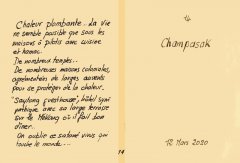 Chaleur plombante.. La Vie
ne semble possible que sous les
maisons à pilotis avec cuisine
et hamac.
De nombreux temples..
De nombreuses maisons coloniales,
agrémentées de larges auvents
pour se protéger de la chaleur.
"Saythong guesthouse", hôtel sym
pathique avec sa large terrasse
sur le Mékong où il fait bon
dîner.
On oublie ce satané virus qui
touche le monde...
14
Champasak
18 Mars 2020